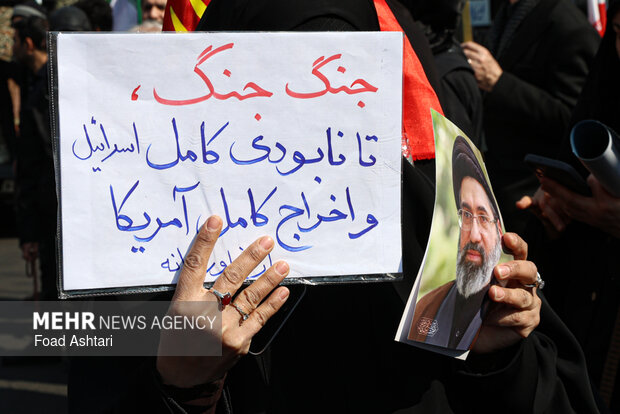 جنگ جنگ،
تا نابودی کامل اسرائیل
و اخراج کامل آمریکا
از
MEHR NEWS AGENCY
Foad Ashtari